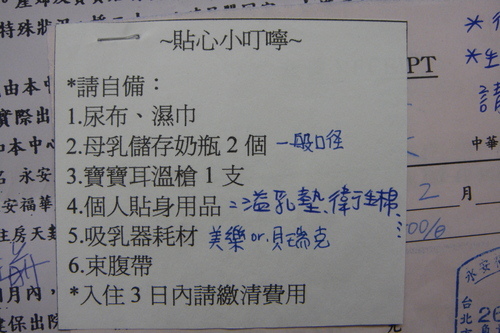 特殊狀況
~貼心小叮嚀~
*請自備：
1.尿布、濕巾
2.母乳儲存奶瓶 2 個 一般口径
3.寶寶耳溫槍 1 支
4.個人貼身用品 溢乳墊、衛生棉
5.吸乳器耗材 美樂 or 貝瑞克
6.束腹帶
*入住 3 日內請繳清費用
由本中
實際出
和本中心
名 永安
安福華
住房天數
月內，
健保出院
PT
中華
2 月
永安
台北